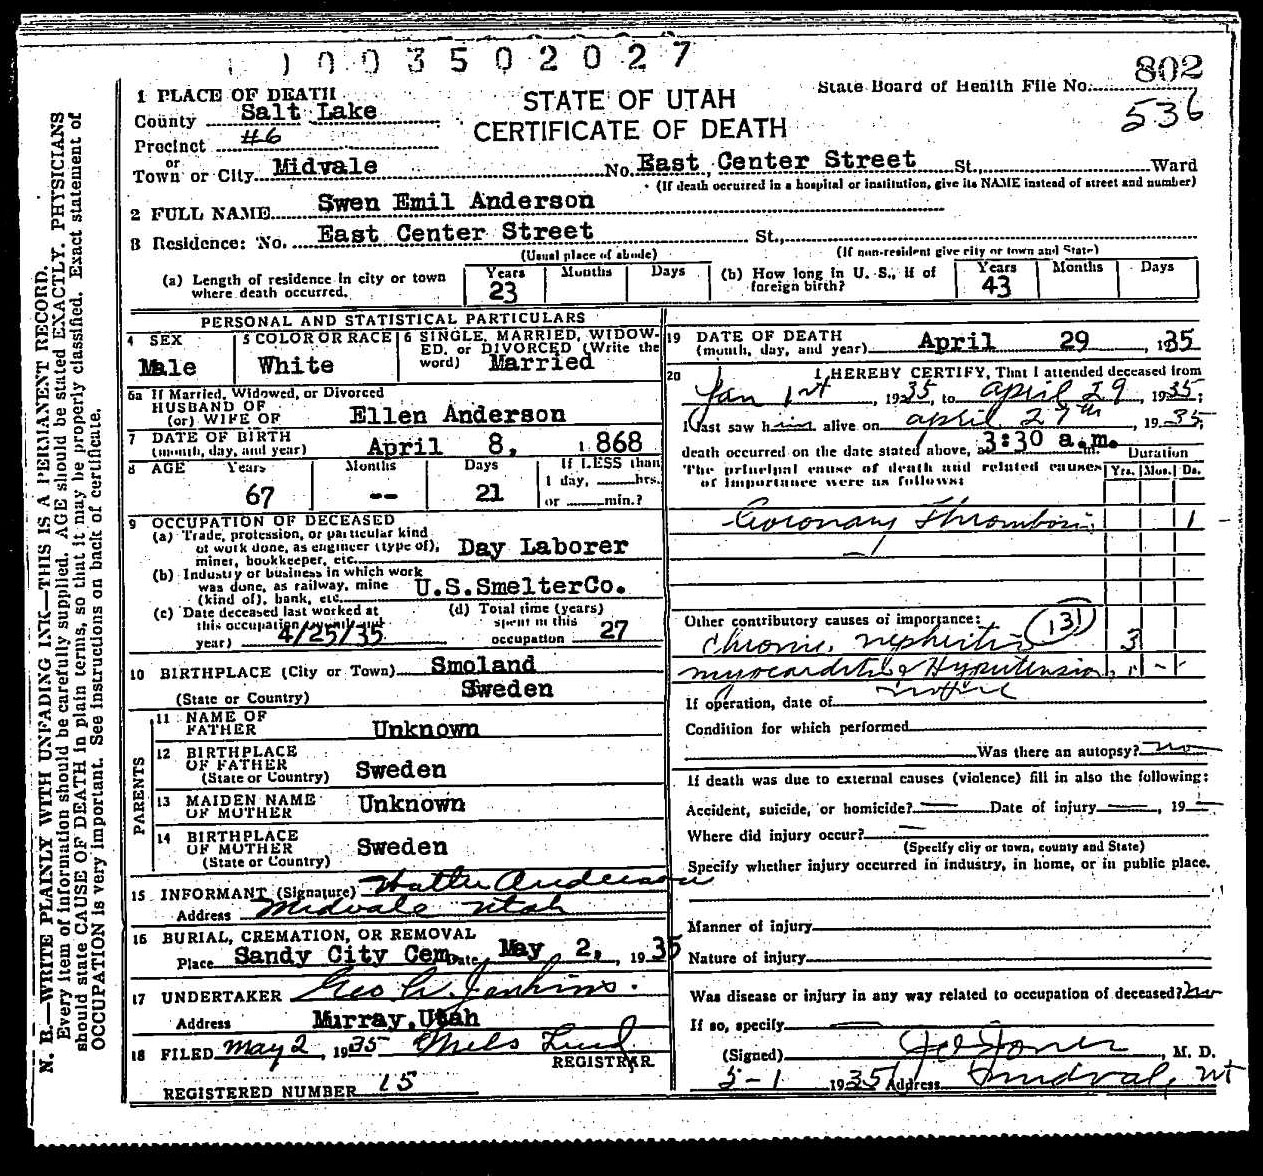 1003502027
802
State Board of Health File No.
536
1 PLACE OF DEATH
STATE OF UTAH
CERTIFICATE OF DEATH
County Salt Lake
Precinct #6
or
Town or City Midvale No. East Center Street St., Ward
(If death occurred in a hospital or institution, give its NAME instead of street and number)
2 FULL NAME Swen Emil Anderson
3 Residence: No. East Center Street St.,
(Usual place of abode) (If non-resident give city or town and State)
(a) Length of residence in city or town where death occurred. Years 23 Months Days
(b) How long in U. S., if of foreign birth? Years 43 Months Days
PERSONAL AND STATISTICAL PARTICULARS
4 SEX Male
5 COLOR OR RACE White
6 SINGLE, MARRIED, WIDOWED, or DIVORCED (Write the word) Married
6a If Married, Widowed, or Divorced
HUSBAND OF
(or) WIFE OF Ellen Anderson
7 DATE OF BIRTH
(month, day, and year) April 8, 1868
8 AGE Years 67 Months -- Days 21
If LESS than
1 day, hrs.
or min.?
9 OCCUPATION OF DECEASED
(a) Trade, profession, or particular kind
of work done, as engineer (type of),
miner, bookkeeper, etc. Day Laborer
(b) Industry or business in which work
was done, as railway, mine
(kind of), bank, etc. U.S.SmelterCo.
(c) Date deceased last worked at
this occupation (month and
year) 4/25/35
(d) Total time (years)
spent in this
occupation 27
10 BIRTHPLACE (City or Town) Smoland
(State or Country) Sweden
PARENTS
11 NAME OF
FATHER Unknown
12 BIRTHPLACE
OF FATHER
(State or Country) Sweden
13 MAIDEN NAME
OF MOTHER Unknown
14 BIRTHPLACE
OF MOTHER
(State or Country) Sweden
15 INFORMANT (Signature) Walter Anderson
Address Midvale Utah
16 BURIAL, CREMATION, OR REMOVAL
Place Sandy City Cem Date May 2, 1935
17 UNDERTAKER Geo A. Jenkins.
Address Murray, Utah
18 FILED May 2, 1935
REGISTRAR
REGISTERED NUMBER 15
19 DATE OF DEATH
(month, day, and year) April 29, 1935
20 I HEREBY CERTIFY, That I attended deceased from
Jan 1st, 1935, to april 29, 1935;
I last saw him alive on april 27th, 1935;
death occurred on the date stated above, at 3:30 a.m. m.
The principal cause of death and related causes
of importance were as follows:
Duration
Yrs. Mos. Ds.
Coronary Thrombosis 1
Other contributory causes of importance: 131
chronic nephritis 3
myocarditis & Hypertension "
If operation, date of
Condition for which performed
Was there an autopsy? no
If death was due to external causes (violence) fill in also the following:
Accident, suicide, or homicide? Date of injury , 19
Where did injury occur?
(Specify city or town, county and State)
Specify whether injury occurred in industry, in home, or in public place.
Manner of injury
Nature of injury
Was disease or injury in any way related to occupation of deceased? no
If so, specify
(Signed) , M. D.
5-1 1935 Address Midvale, Ut
N. B.—WRITE PLAINLY WITH UNFADING INK—THIS IS A PERMANENT RECORD.
Every item of information should be carefully supplied. AGE should be stated EXACTLY. PHYSICIANS
should state CAUSE OF DEATH in plain terms, so that it may be properly classified. Exact statement of
OCCUPATION is very important. See instructions on back of certificate.